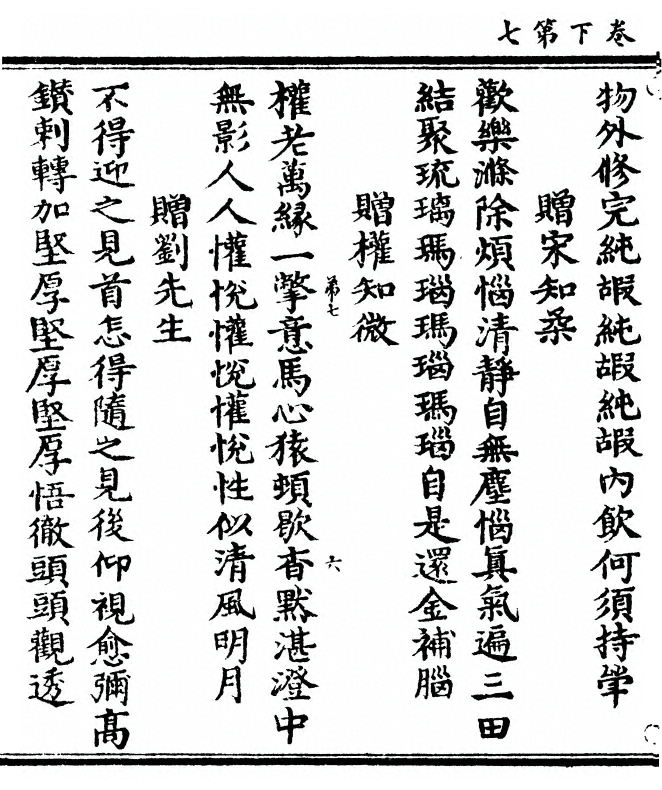 卷下第七
物外修完純嘏純嘏純嘏內飲何須持斝
贈宋知柔
歡樂滌除煩惱清靜自無塵惱眞氣遍三田
結聚琉璃瑪瑙瑪瑙瑪瑙自是還金補腦
贈權知微
第七
六
權老萬緣一擎意馬心猿頓歇杳默湛澄中
無影人人懽悅懽悅懽悅性似清風明月
贈劉先生
不得迎之見首怎得隨之見後仰視愈彌高
鑚刺轉加堅厚堅厚堅厚悟徹頭頭觀透